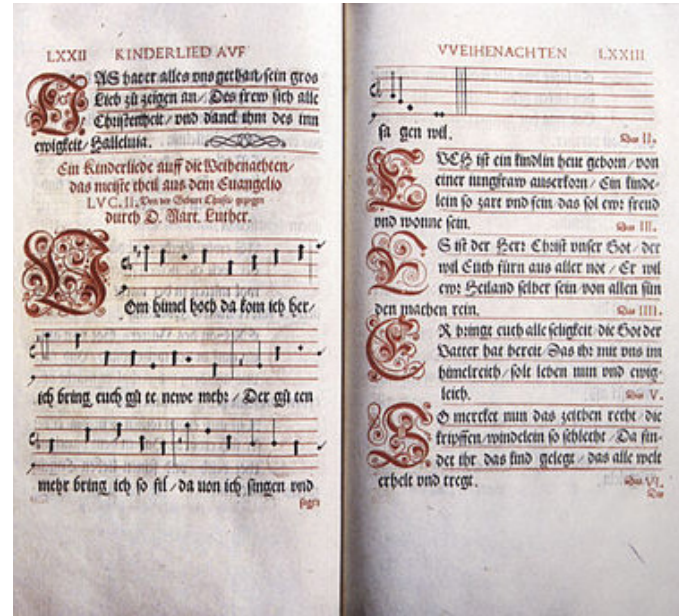 LXXII KINDERLIED AVF
DAS hat er alles vns gethan/sein gros
Lieb zů zeigen an/Des frew sich alle
Christenheit/vnd danck ihm des inn
ewigkeit/Halleluia.
Ein Kinderliede auff die Weihenachten/
das meiste theil aus dem Euangelio
LVC.II. Von der Geburt Christi/gezogen
durch D. Mart. Luther.
VOm himel hoch da kom ich her/
ich bring euch gů te newe mehr/Der gů ten
mehr bring ich so fil/da uon ich singen vnd
sagen
VVEIHENACHTEN LXXIII
sa gen wil.
Das II.
EVCH ist ein kindlin heut geborn/von
einer iungfraw auserkorn/Ein kinde-
lein so zart vnd fein/das sol ewr freud
vnd wonne sein.
Das III.
ES ist der Herr Christ vnser Got/der
wil Euch fürn aus aller not/Er wil
ewr Heiland selber sein/von allen sün
den machen rein.
Das IIII.
ER bringt euch alle seligkeit/die Got der
Vatter hat bereit/Das ihr mit vns im
himelreich/solt leben nun vnd ewig-
leich.
Das V.
SO mercket nun das zeichen recht/die
kripffen/windelein so schlecht/Da fin-
det ihr das kind gelegt/das alle welt
erhelt vnd tregt.
Das VI.
Da